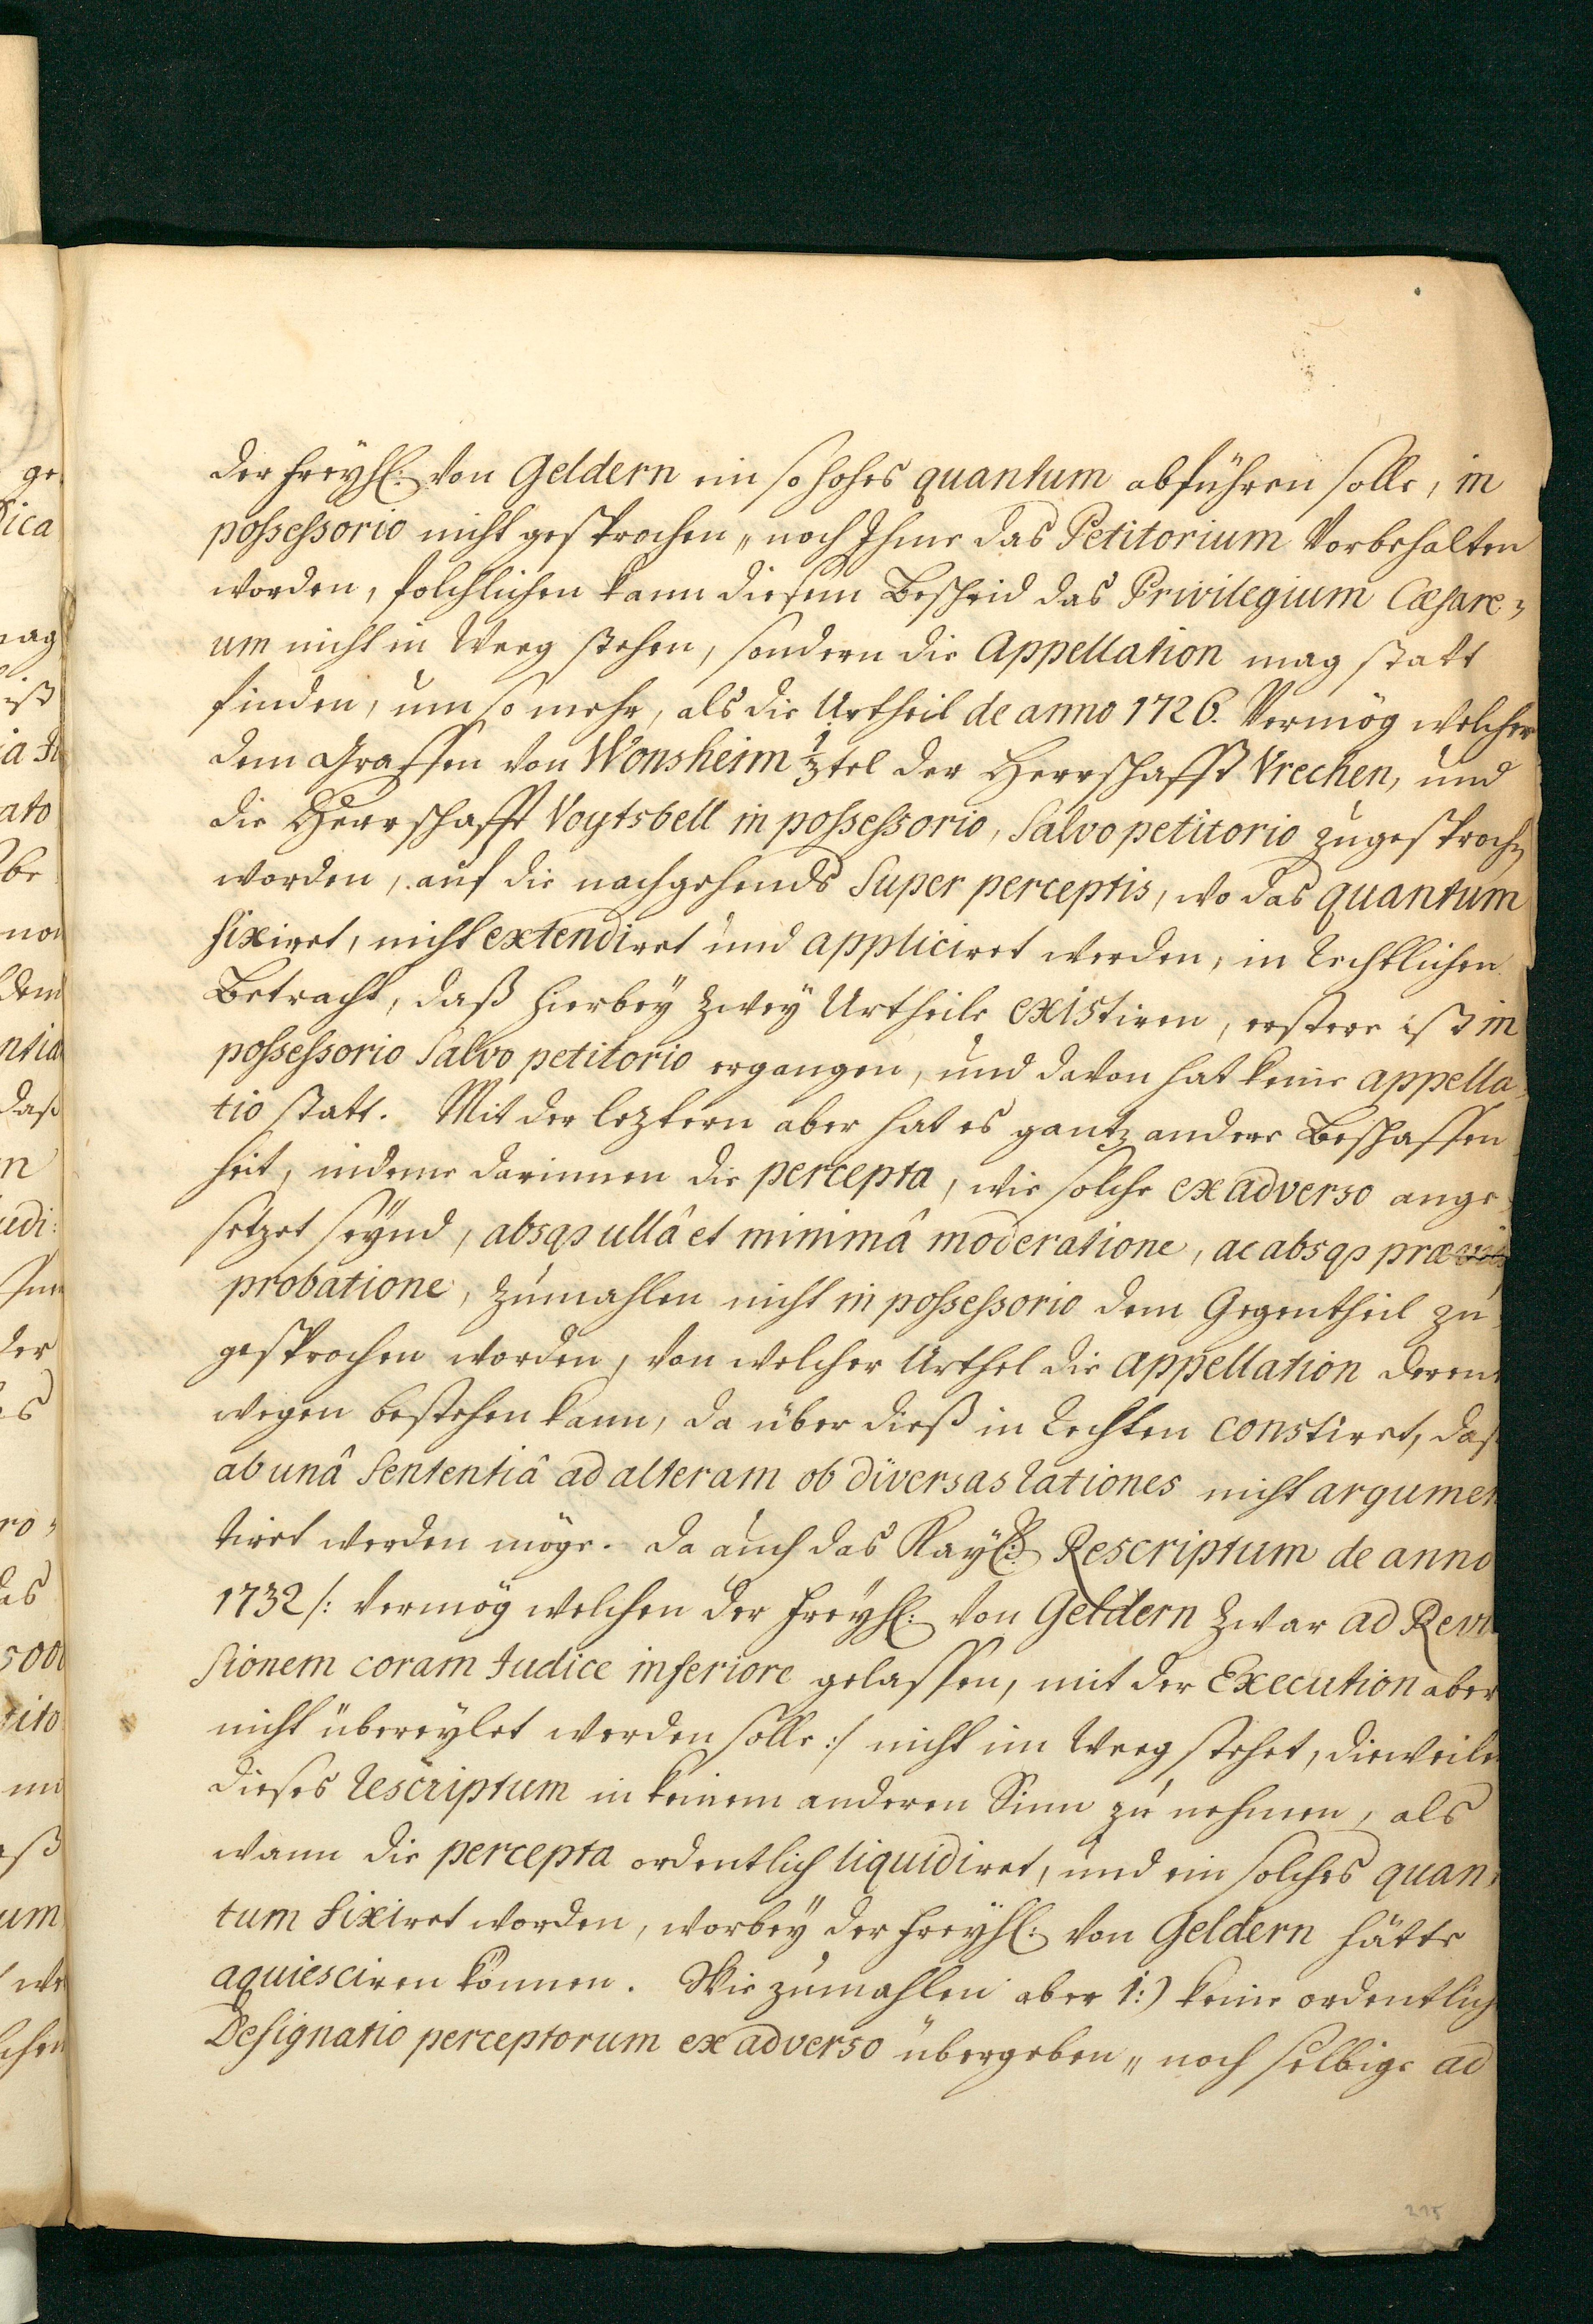 der Freyh: von Geldern ein so hohes quantum abführen solle, in
possessorio nicht gesprochen, noch Ihme das Petitorium Vorbehalten
worden, folchlichen kann diesem Bescheid das Privilegium Cæsare-
um nicht in Weeg stehen, sondern die Appellation mag statt
finden, um so mehr, als die Urtheil de anno 1726. Vermög welcher
dem Graffen von Wonsheim 1/2tel der Herrschafft Vrechen, und
die Herrschafft Voytsbell in possessorio, Salvo petitorio zugesprochen
worden, auf die nachgehends Super perceptis, wo das quantum
fixiret, nicht extendiret und appliciret werden, in rechtlichen
Betracht, daß hierbey zwey Urtheile existiren, erstere ist in
possessorio Salvo petitorio ergangen, und davon hat keine appella-
tio statt. Mit der leztern aber hat es gantz andere Beschaffen
heit, indeme darinnen die percepta, wie solche ex adverso ange-
setzet seynd, absqs ullâ et minimâ moderatione, ac absqs præviâ
probatione, zumahlen nicht in possessorio dem Gegentheil zu-
gesprochen worden, von welcher Urthel die appellation derent
wegen bestehen kann, da über dieß in rechten constiret, daß
ab unâ Sententiâ ad alteram ob diversas rationes nicht argumen
tiret werden möge. Da auch das Kayl: Rescriptum de anno
1732 /: vermög welchen der Freyh: von Geldern zwar ad Revi
sionem coram Iudice inferiore gelassen, mit der Execution aber
nicht übereylet werden solle :/ nicht im Weeg stehet, dieweilen
dieses rescriptum in keinem anderen Sinn zu nehmen, als
wann die percepta ordentlich liquidiret, und ein solches quan-
tum fixiret worden, worbey der Freyh: von Geldern hätte
aquiesciren können. Wie zumahlen aber 1:) keine ordentlich
Designatio perceptorum ex adverso übergeben, noch selbige ad
215